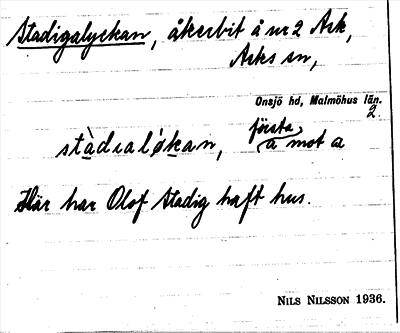 Stadigalyckan, åkerbit å nr 2 Ark,
Arks sn,
Onsjö hd, Malmöhus län.
2.
stàdıalýkan, första a mot a
Här har Olof Stadig haft hus.
NILS NILSSON 1936.